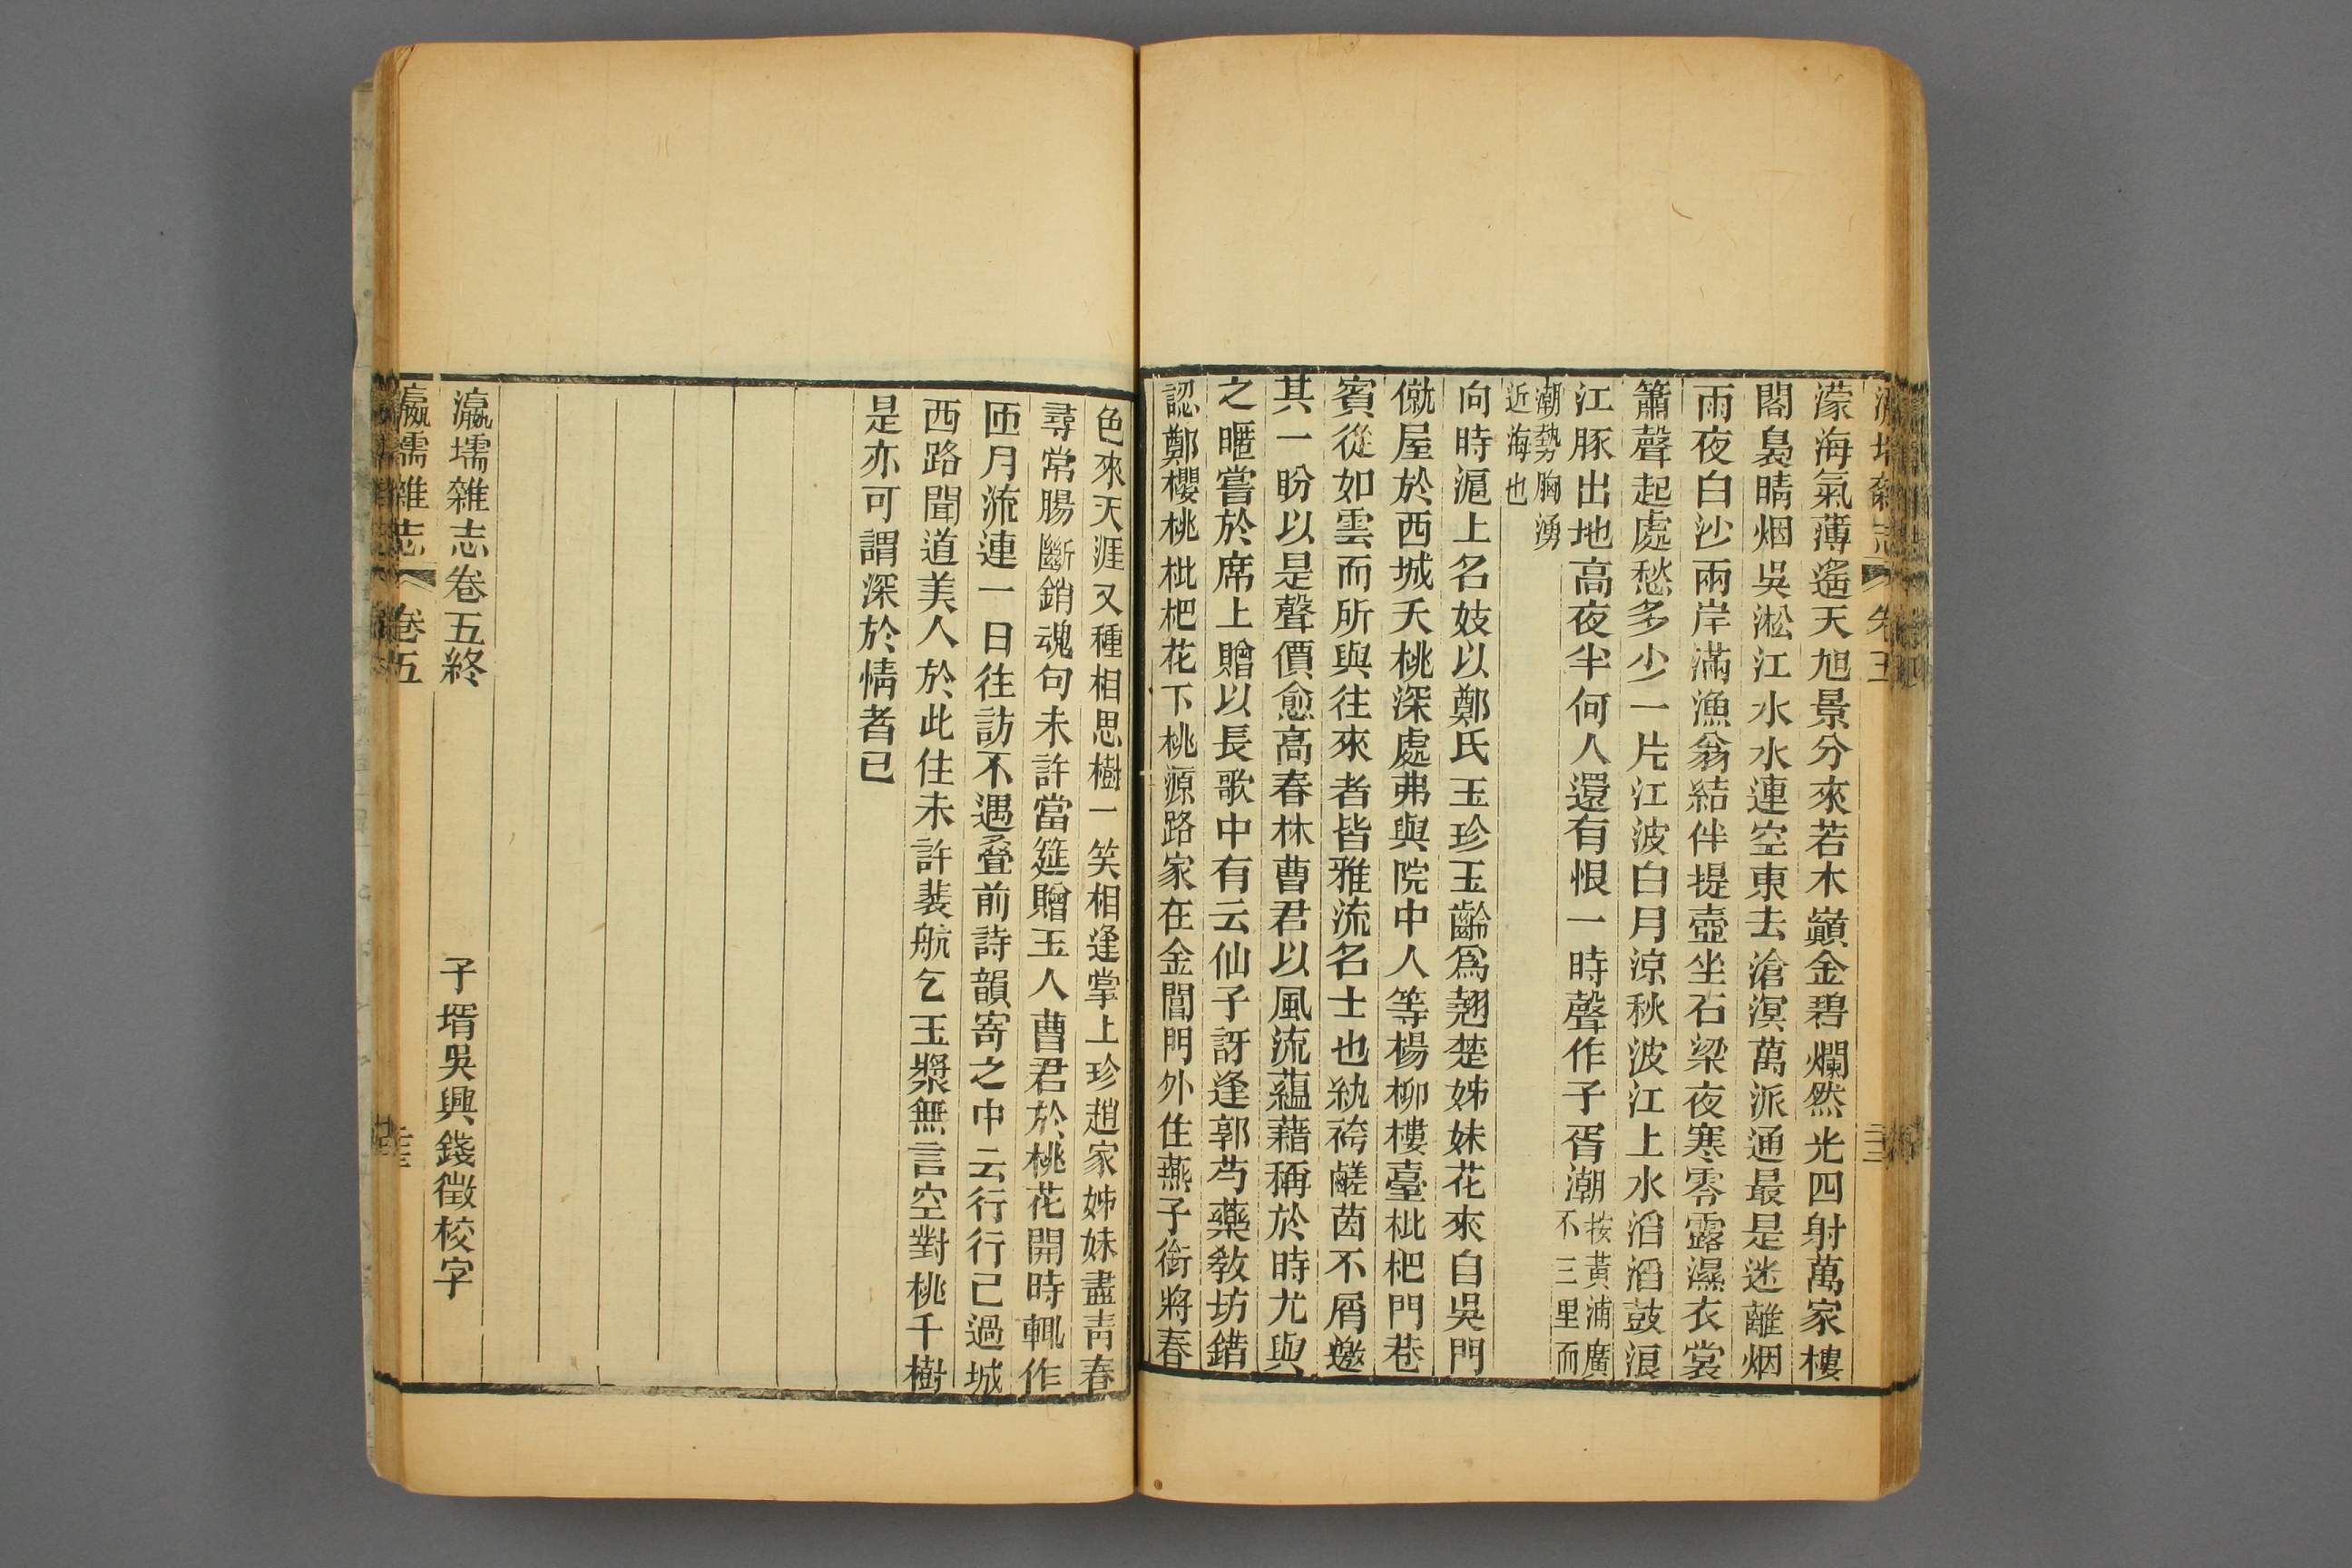 濛海氣薄遙天旭景分來若木巔金碧爛然光四射萬家樓
閣裊晴烟吳淞江水水連空東去滄溟萬派通最是迷離烟
雨夜白沙兩岸滿漁翁結伴提壺坐石梁夜寒零露濕衣裳
簫聲起處愁多少一片江波白月涼秋波江上水滔滔鼓浪
江豚出地高夜半何人還有恨一時聲作子胥潮
按黃浦廣
不三里而
潮勢胸湧
近海也
向時滬上名妓以鄭氏玉珍玉齡爲翹楚姊妹花來自吳門
僦屋於西城夭桃深處弗與院中人等楊柳樓臺枇杷門巷
賓從如雲而所與往來者皆雅流名士也紈袴鹺茵不屑邀
其一盼以是聲價愈高春林曹君以風流蘊藉稱於時尤與
之暱嘗於席上贈以長歌中有云仙子訝逢郭芍藥教坊錯
認鄭櫻桃枇杷花下桃源路家在金閶門外住燕子銜將春
色來天涯又種相思樹一笑相逢掌上珍趙家姊妹盡靑春
尋常腸斷銷魂句未許當筵贈玉人曹君於桃花開時輒作
匝月流連一日往訪不遇叠前詩韻寄之中云行行已過城
西路聞道美人於此住未許裴航乞玉漿無言空對桃千樹
是亦可謂深於情者已
瀛壖雜志卷五終
子壻吳興錢徵校字
瀛壖雜志
卷五